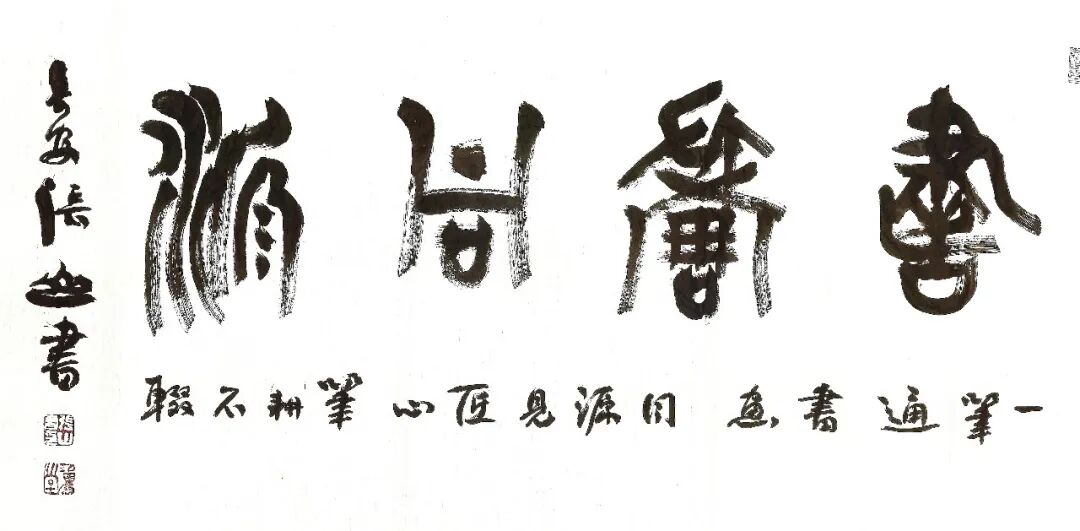 書畫同源
一筆通書畫同源見匠心筆耕不輟
長安張山書